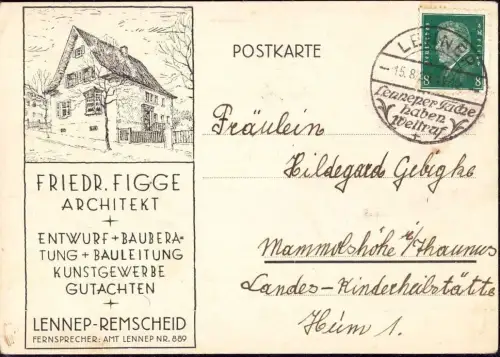 FRIEDR. FIGGE
ARCHITEKT
ENTWURF + BAUBERA-
TUNG + BAULEITUNG
KUNSTGEWERBE
GUTACHTEN
LENNEP-REMSCHEID
FERNSPRECHER: AMT LENNEP NR. 889
POSTKARTE
LENNEP
15.8.
Lenneper Tuche
haben
Weltruf
8 8
Fräulein
Hildegard Gebigke
Mammolshöhe i/Thaunus
Landes-Kinderheilstätte
Heim 1.